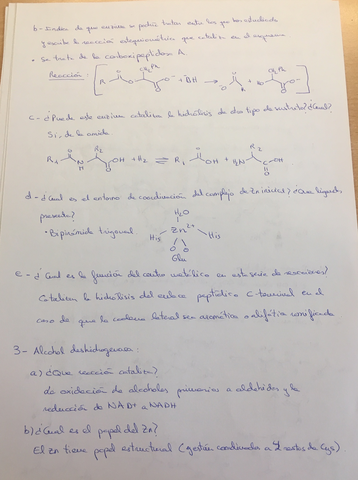 b- Indica de que enzima se podría tratar entre los que has estudiado
y escribe la reacción estequiométrica que cataliza en el organismo
• Se trata de la carboxipeptidasa A
Reacción:
CH2Ph
R O O O O- + BH → O R B + HO O-
CH2Ph
c- ¿Puede este enzima catalizar la hidrólisis de otro tipo de sustrato? ¿Cuál?
Sí, de la amida
R1 O N H R2 O OH + H2 ⇌ R1 O OH + H2N R2 C O OH
d- ¿Cual es el entorno de coordinación del complejo de Zn inicial? ¿Que ligandos
presenta?
• Bipirámide trigonal
H2O
His Zn2+ His
O O
Glu
e- ¿Cual es la función del centro metálico en esta serie de reacciones?
Catalizan la hidrólisis del enlace peptídico C-terminal en el
caso de que la cadena lateral sea aromática o alifática ramificada
3- Alcohol deshidrogenasa:
a) ¿Que reacción cataliza?
La oxidación de alcoholes primarios a aldehídos y la
reducción de NAD+ a NADH
b) ¿Cual es el papel del Zn?
El Zn tiene papel estructural (están coordinados a 2 restos de Cys)